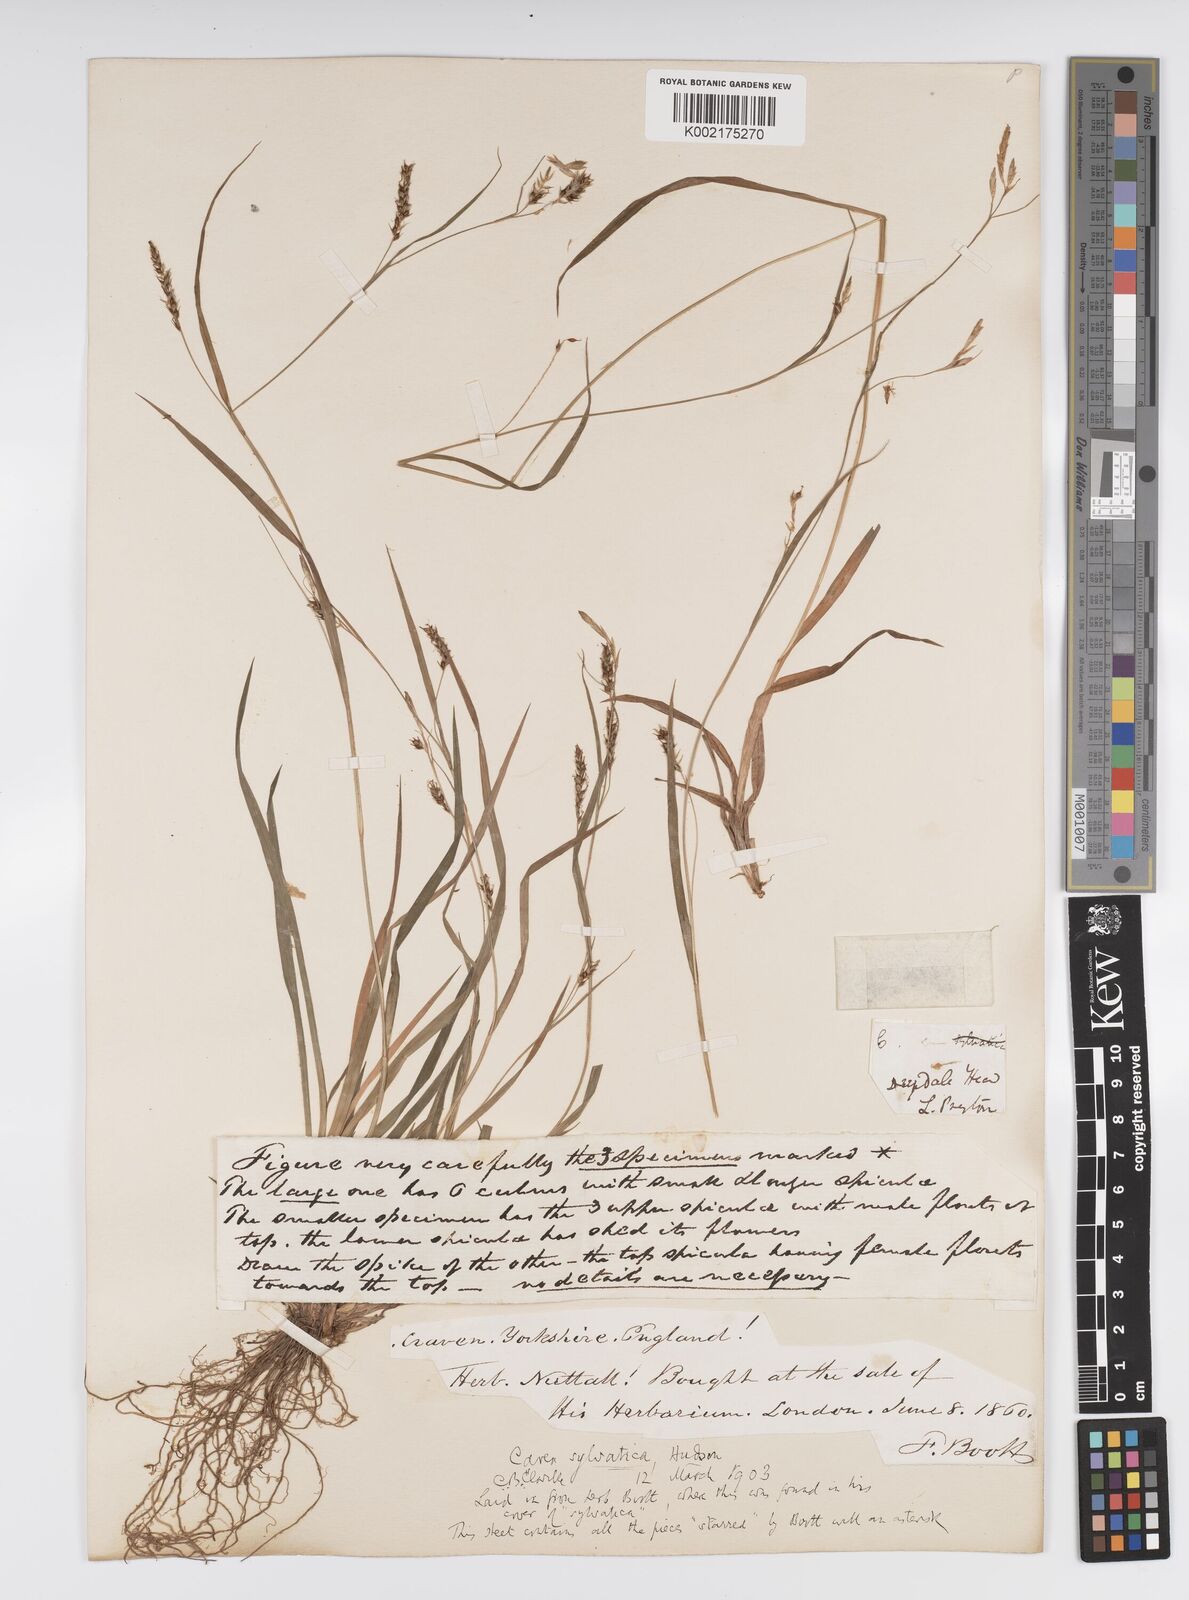 P
ROYAL BOTANIC GARDENS KEW
K002175270
C. sylvatica
Deepdale Head
L. Preston
Figure very carefully the 3 specimens marked *
The large one has 6 culms with small & longer spiculæ
The smaller specimen has the 3 upper spiculæ with male florets at
top. the lower spiculæ has shed its flowers
Draw the spike of the other - the top spicula having female florets
towards the top — no details are necessary —
Craven. Yorkshire. England!
Herb. Nuttall! Bought at the sale of
His Herbarium. London. June 8. 1860.
F. Boott
Carex sylvatica, Hudson
C.B. Clarke 12 March 1903
Laid in from Herb. Boott, where this was found in his
cover of "sylvatica"
This sheet contains all the pieces "starred" by Boott with an asterisk
inches
centimeters
Density
Don Williams
M001007
KEW
Royal Botanic Gardens
copyright reserved
0 1 2 3 4 5 6 7 8 9 10
cm